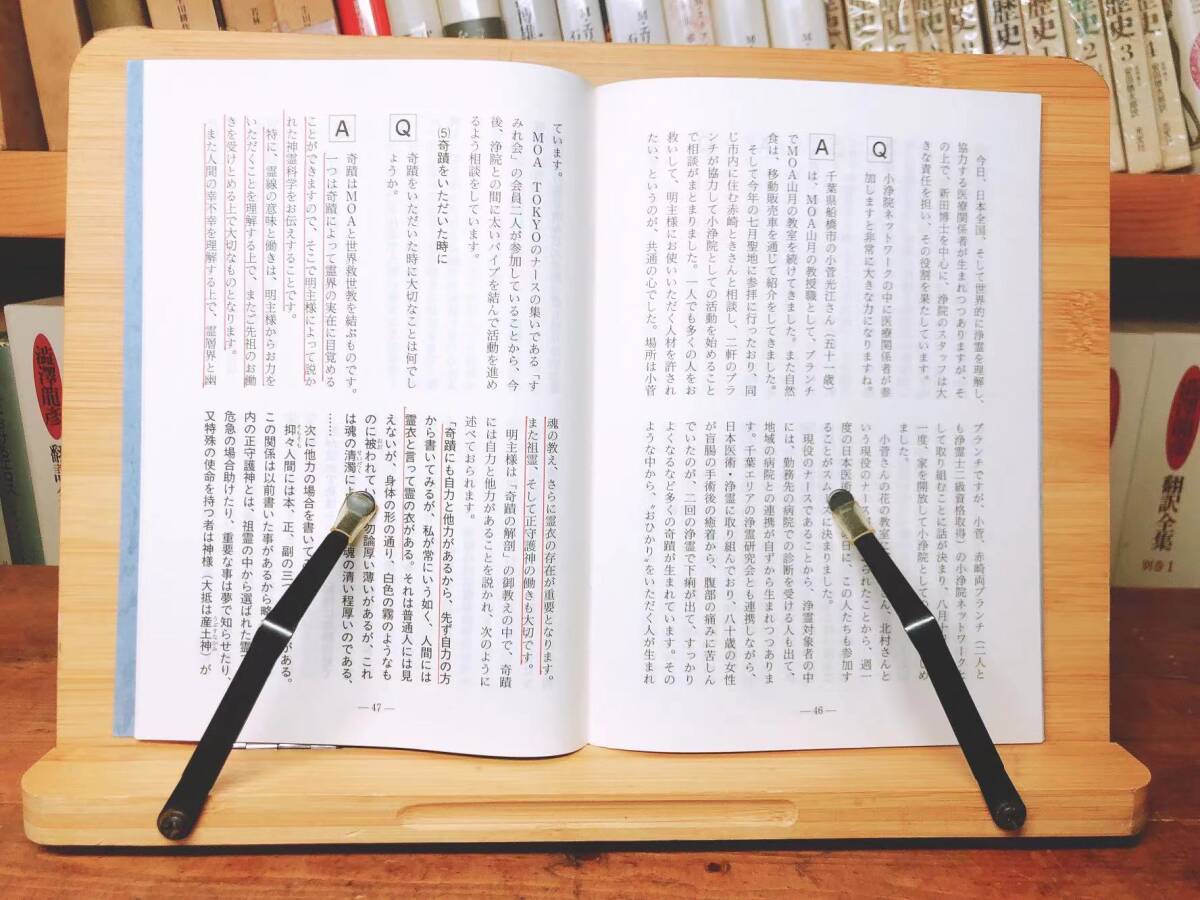 今日、日本全国、そして世界的に浄霊を理解し、
協力する医療関係者が生まれつつありますが、そ
の上で、新田博士を中心に、浄院のスタッフは大
きな責任を担い、その役割を果たしています。
Q
小浄院ネットワークの中に医療関係者が参
加しますと非常に大きな力になりますね。
A
千葉県船橋市の小菅光江さん（五十一歳）
は、MOA山月の教授職として、ブランチ
でMOA山月の教室を続けてきました。また自然
食は、移動販売車を通じて紹介をしてきました。
そして今年の七月聖地に参拝に行ったおり、同
じ市内に住む赤崎ときさんと相談し、二軒のブラ
ンチが協力して小浄院としての活動を始めること
で相談がまとまりました。一人でも多くの人をお
救いして、明主様にお使いいただく人材を許され
たい、というのが、共通の心でした。場所は小菅
ブランチですが、小菅、赤崎両ブランチ（二人と
も浄霊士二級資格取得）の小浄院ネットワークと
して取り組むことに話が決まり、八月
一度、家を開放して小浄院としての
ました。
小菅さんの花の教室に
さん、北村さんと
いう現役のナース
られたことから、週一
度の日本医術
日に、この人たちも参加す
ることがスムーズに決まりました。
現役のナースであることから、浄霊対象者の中
には、勤務先の病院での診断を受ける人も出て、
地域の病院との連携が自ずから生まれつつありま
す。千葉エリアの浄霊研究会とも連携しながら、
日本医術・浄霊に取り組んでおり、八十歳の女性
が盲腸の手術後の癒着から、腹部の痛みに苦しん
でいたのが、二回の浄霊で下痢が出て、すっかり
よくなるなど多くの奇蹟が生まれています。その
ような中から、"おひかり"をいただく人が生まれ
—46—
ています。
MOA TOKYOのナースの集いである「す
みれ会」の会員二人が参加していることから、今
後、浄院との間に太いパイプを結んで活動を進め
るよう相談をしています。
⑸奇蹟をいただいた時に
Q
奇蹟をいただいた時に大切なことは何でし
ょうか。
A
奇蹟はMOAと世界救世教を結ぶものです。
一つは奇蹟によって霊界の実在に目覚める
ことができますので、そこで明主様によって説か
れた神霊科学をお伝えすることです。
特に、霊線の意味と働きは、明主様からお力を
いただくことを理解する上、またご先祖のお働
きを受けとめる上で大切なものとなります。
また人間の幸不幸を理解する上で、霊層界と幽
魂の教え、さらに霊衣の存在が重要となります。
また祖霊、そして正守護神の働きも大切です。
明主様は「奇蹟の解剖」の御教えの中で、奇蹟
には自力と他力があることを説かれ、次のように
述べておられます。
「奇蹟にも自力と他力があるから、先ず自力の方
から書いてみるが、私が常にいう如く、人間には
霊衣と言って霊の衣がある。それは普通人には見
えないが、身体の形の通り、白色の霧のようなも
のに被われてい
勿論厚い薄いがあるが、これ
は魂の清濁に
魂の清い程厚いのである、
……
次に他力の場合を書いて
抑々人間には本、正、副の三つ
がある。
この関係は以前書いた事があるから略
内の正守護神とは、祖霊の中から選ばれた霊
危急の場合助けたり、重要な事は夢で知らせたり、
又特殊の使命を持つ者は神様（大抵は産土神）が
—47—
歴史
歴史 1
2
歴史 3
4
澁澤龍彦
翻訳全集
別巻1